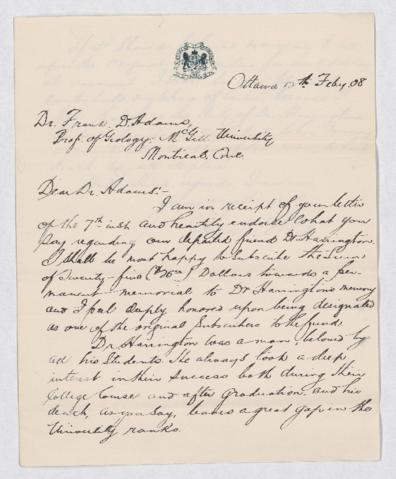 Ottawa 13th Feby. 08
Dr. Frank D. Adams,
Prof. of Geology, McGill University
Montreal, Que.
Dear Dr. Adams:-
I am in receipt of your letter
of the 7th inst and heartily endorse what you
say regarding our departed friend Dr. Harrington.
I shall be most happy to subscribe the sum
of Twenty-five ($25.00) Dollars towards a per-
manent memorial to Dr Harrington's memory
and I feel deeply honored upon being designated
as one of the original subscribers to the fund.
Dr. Harrington was a man, beloved by
all his students. He always took a deep
interest in their success both during their
College Course and after graduation, and his
death, as you say, leaves a great gap in the
University ranks.